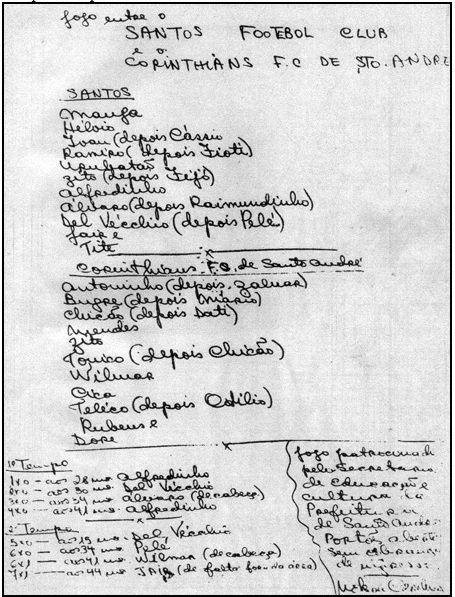 Jogo entre o
SANTOS FOOTEBOL CLUB
e o
CORINTHIANS F.C DE STO. ANDRE
SANTOS
Manga
Hélvio
Ivan (depois Cássio
Ramiro (depois Fioti)
Urubatão
Zito (depois Feijó)
Alfredinho
Alvaro (depois Raimundinho)
Del Vecchio (depois Pelé)
Jair e
Tite
Corinthians F.C. de Santo André
Antoninho (depois Zaluar)
Bugre (depois Mário)
Chicão (depois Dati)
Mendes
Zito
Tonico (depois Chicão)
Wilmar
Cica
Teleco (depois Cotilio)
Rubens e
Dore
1º Tempo
1x0 — aos 28 ms. Alfredinho
2x0 — aos 30 ms. Del Vecchio
3x0 — aos 34 ms. Alvaro (de cabeça)
4x0 — aos 41 ms. Alfredinho
2º Tempo
5x0 — aos 15 ms. Del Vecchio
6x0 — aos 34 ms. Pelé
6x1 — aos 41 ms. Wilmar (de cabeça)
7x1 — aos 44 ms. JAIR (de falta fora da área)
Jogo patrocinado
pela Secretaria
de educação e
cultura da
Prefeitura
de Santo André
Portões abertos
sem cobrança
de ingresso